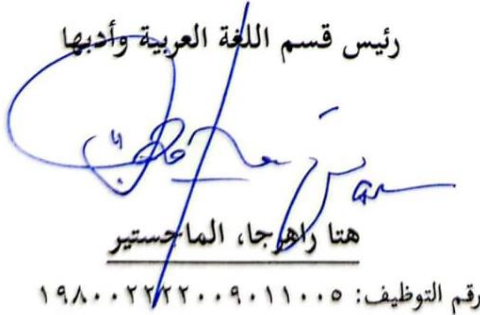 رئيس قسم اللغة العربية وأدبها
هتا راهرجا، الماجستير
رقم التوظيف: ١٩٨٠٠٢٢٢٢٠٠٩٠١١٠٠٥